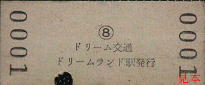 0001
⑧
ドリーム交通
ドリームランド駅発行
0001
見本